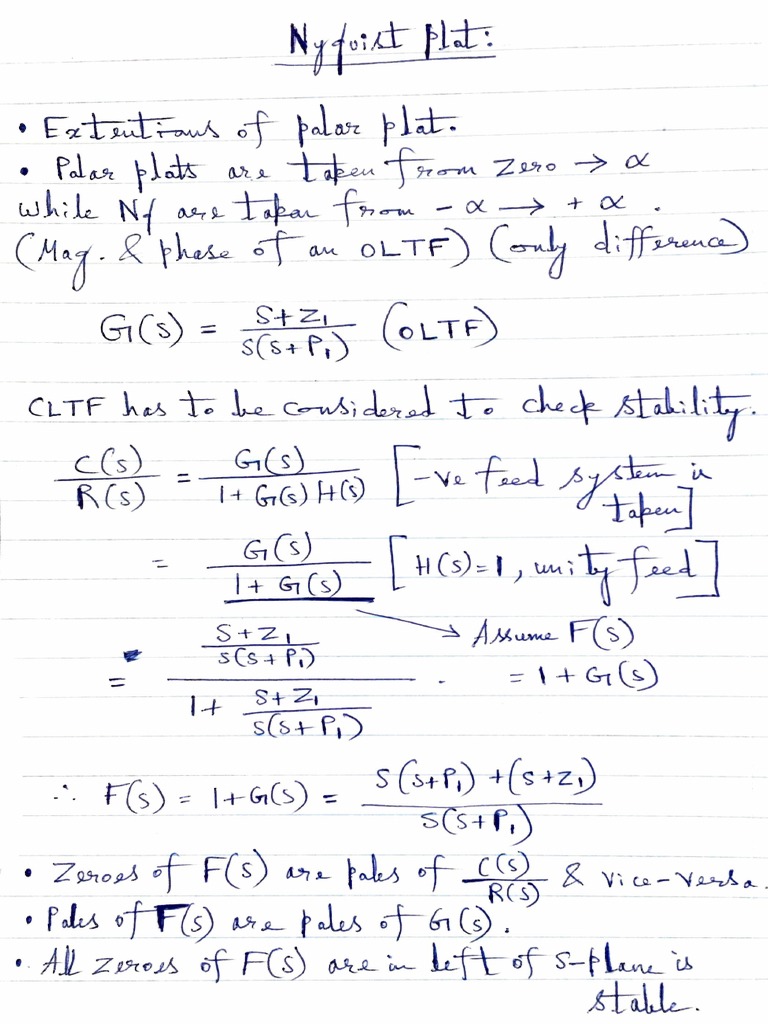 Nyquist plot:
• Extentions of polar plot.
• Polar plots are taken from zero → α
while Nf are taken from - α → + α .
(Mag. & phase of an OLTF) (only difference)
G(s) = (s+z₁)/(s(s+P₁)) (OLTF)
CLTF has to be considered to check stability.
C(s)/R(s) = G(s)/(1+G(s)H(s)) [-ve feed system is
taken]
= G(s)/(1+G(s)) [H(s)=1, unity feed]
→ Assume F(s)
= 1+G(s)
= ((s+z₁)/(s(s+P₁)))/(1+(s+z₁)/(s(s+P₁))) .
∴ F(s) = 1+G(s) = (s(s+P₁)+(s+z₁))/(s(s+P₁))
• Zeroes of F(s) are poles of C(s)/R(s) & vice-versa.
• Poles of F(s) are poles of G(s).
• All zeroes of F(s) are in left of s-plane is
stable.